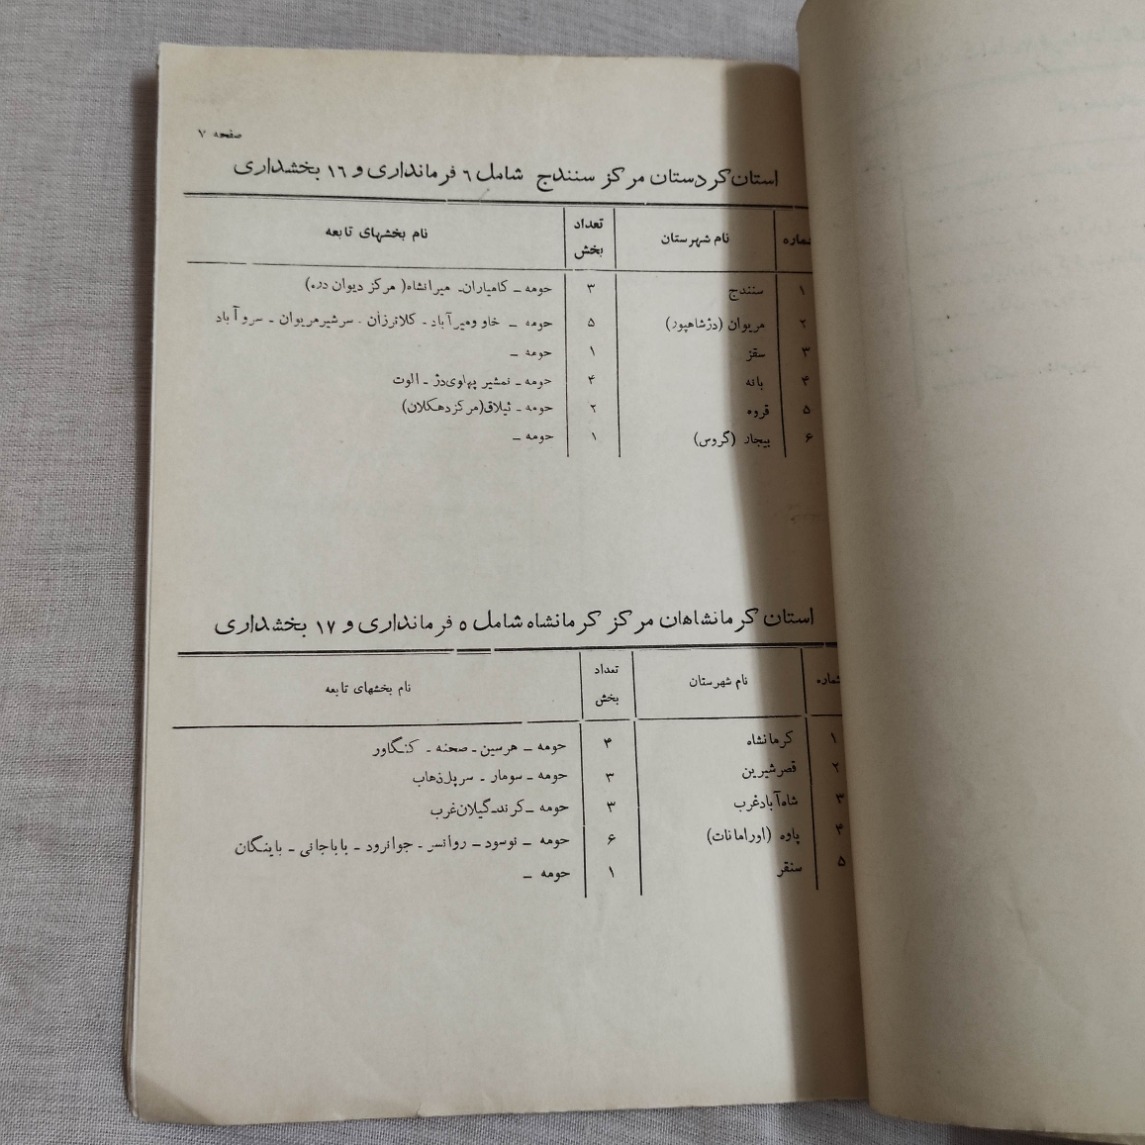 صفحه ۷
استان کردستان مرکز سنندج شامل ٦ فرمانداری و ١٦ بخشداری
شماره نام شهرستان تعداد بخش نام بخشهای تابعه
۱ سنندج ۳ حومه ـ کامیاران ـ میرانشاه ( مرکز دیوان دره)
۲ مریوان (دژشاهپور) ۵ حومه ـ خاو ومیرآباد ـ کلاترزان ـ سرشیرمریوان ـ سروآباد
۳ سقز ۱ حومه ـ
۴ بانه ۴ حومه ـ نمشیر پهلوی‌دژ ـ الوت
۵ قروه ۲ حومه ـ ئیلاق (مرکزدهکلان)
۶ بیجار (گروس) ۱ حومه ـ
استان کرمانشاهان مرکز کرمانشاه شامل ٥ فرمانداری و ١٧ بخشداری
شماره نام شهرستان تعداد بخش نام بخشهای تابعه
۱ کرمانشاه ۴ حومه ـ هرسین ـ صحنه ـ کنگاور
۲ قصرشیرین ۳ حومه ـ سومار ـ سرپل‌ذهاب
۳ شاه‌آبادغرب ۳ حومه ـ کرند ـ گیلان‌غرب
۴ پاوه (اورامانات) ۶ حومه ـ نوسود ـ روانسر ـ جوانرود ـ باباجانی ـ باینگان
۵ سنقر ۱ حومه ـ